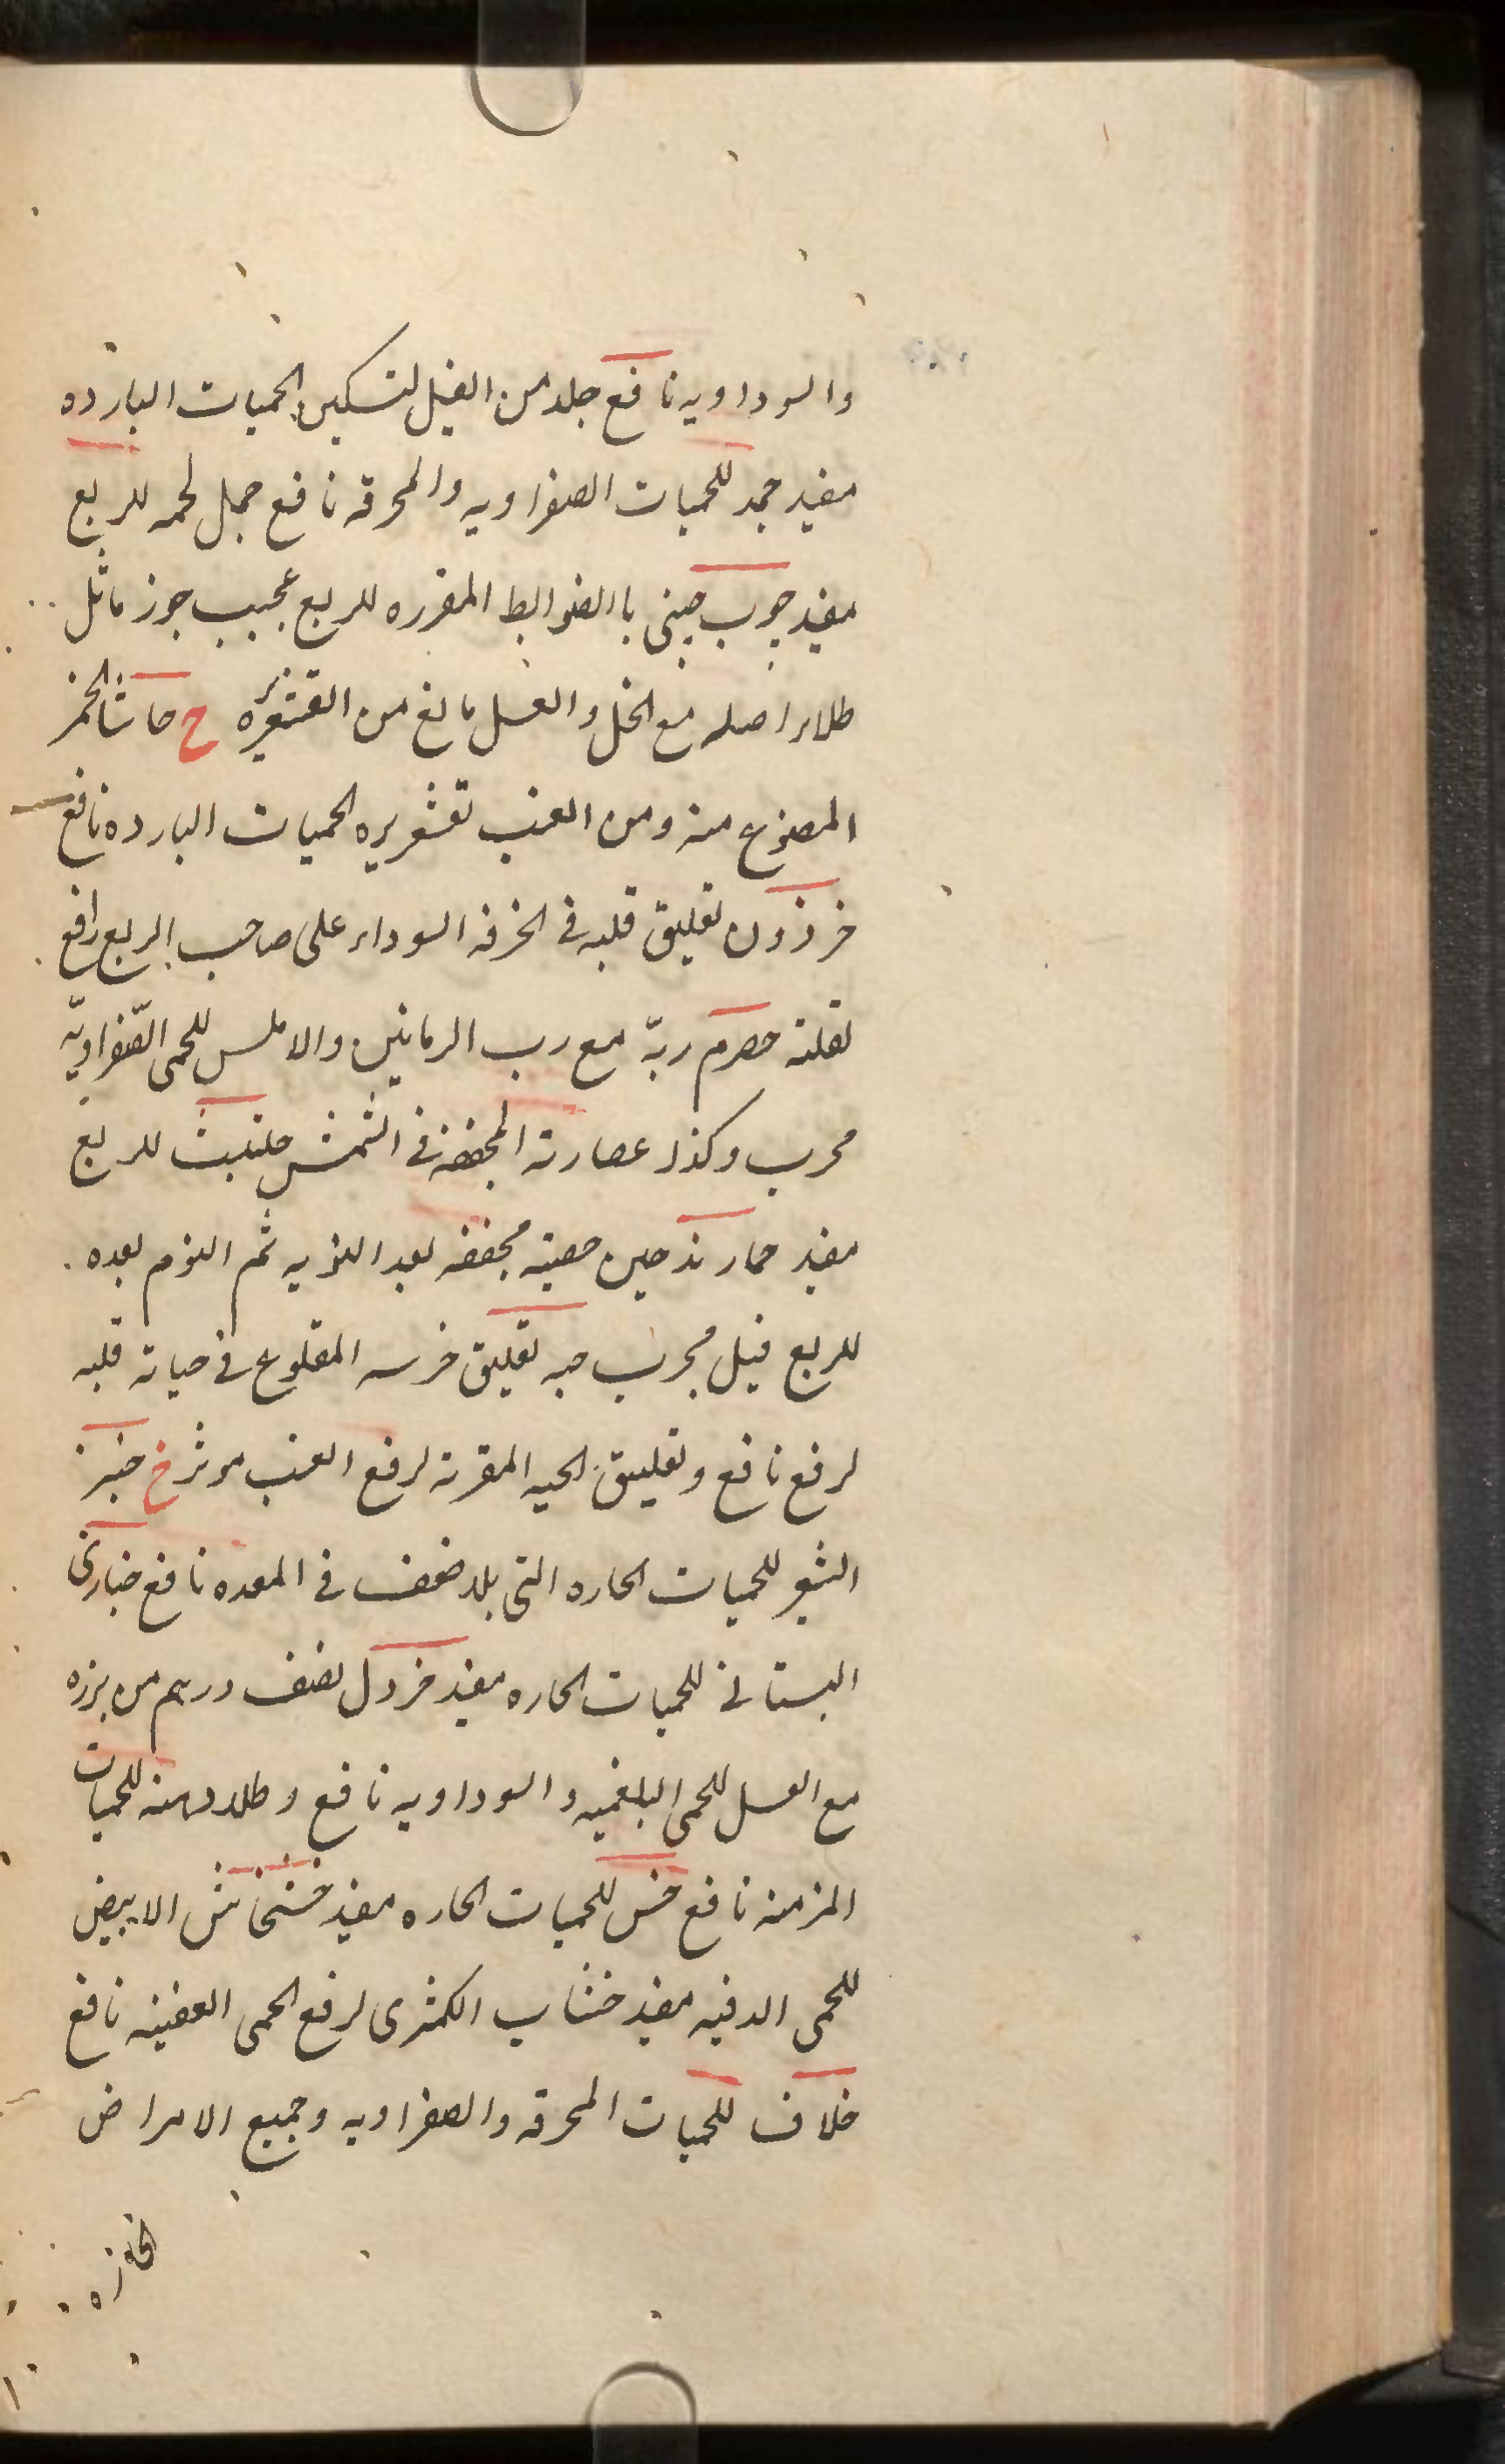 والسوداويه نافع جلد من الفيل لتسكين الحميات البارده
مفيد جمد للحميات الصفراويه والمحرقه نافع جمل لحمه للربع
مفيد چوب چينى باالضوابط المقرره للربع عجيب جوز ماثل
طلاء اصله مع الخل والعسل مانع من القشعريره ح حاشا الخمر
المصنوع منه ومن العنب لقشعريره الحميات البارده نافع
حرذون تعليق قلبه فى الخرقه السوداء على صاحب الربع رافع
لعلته حصرم ربّ مع رب الرمانين والاملس للحمى الصّفراويّه
مجرب وكذا عصارته المجففه فى الشمس حلتيت للربع
مفيد حمار تدخين خصيته مجففه بعد النوبه ثم النوم بعده
للربع قيل مجرب حيه تعليق ضرسه المقلوع فى حياته قلبه
لرفع نافع وتعليق الحيه المقرنه لرفع الغب موثر خ خبز
الشعير للحميات الحاره التى بلا ضعف فى المعده نافع خبازى
البستانى للحميات الحاره مفيد خردل نصف درهم من بزره
مع العسل للحمى البلغميه والسوداويه نافع وطلاء دهنه للحميات
المزمنه نافع خس للحميات الحاره مفيد خشخاش الابيض
للحمى الدقيه مفيد خشاب الكمثرى لرفع الحمى العفنيه نافع
خلاف للحميات المحرقه والصفراويه وجميع الامراض
الحاره